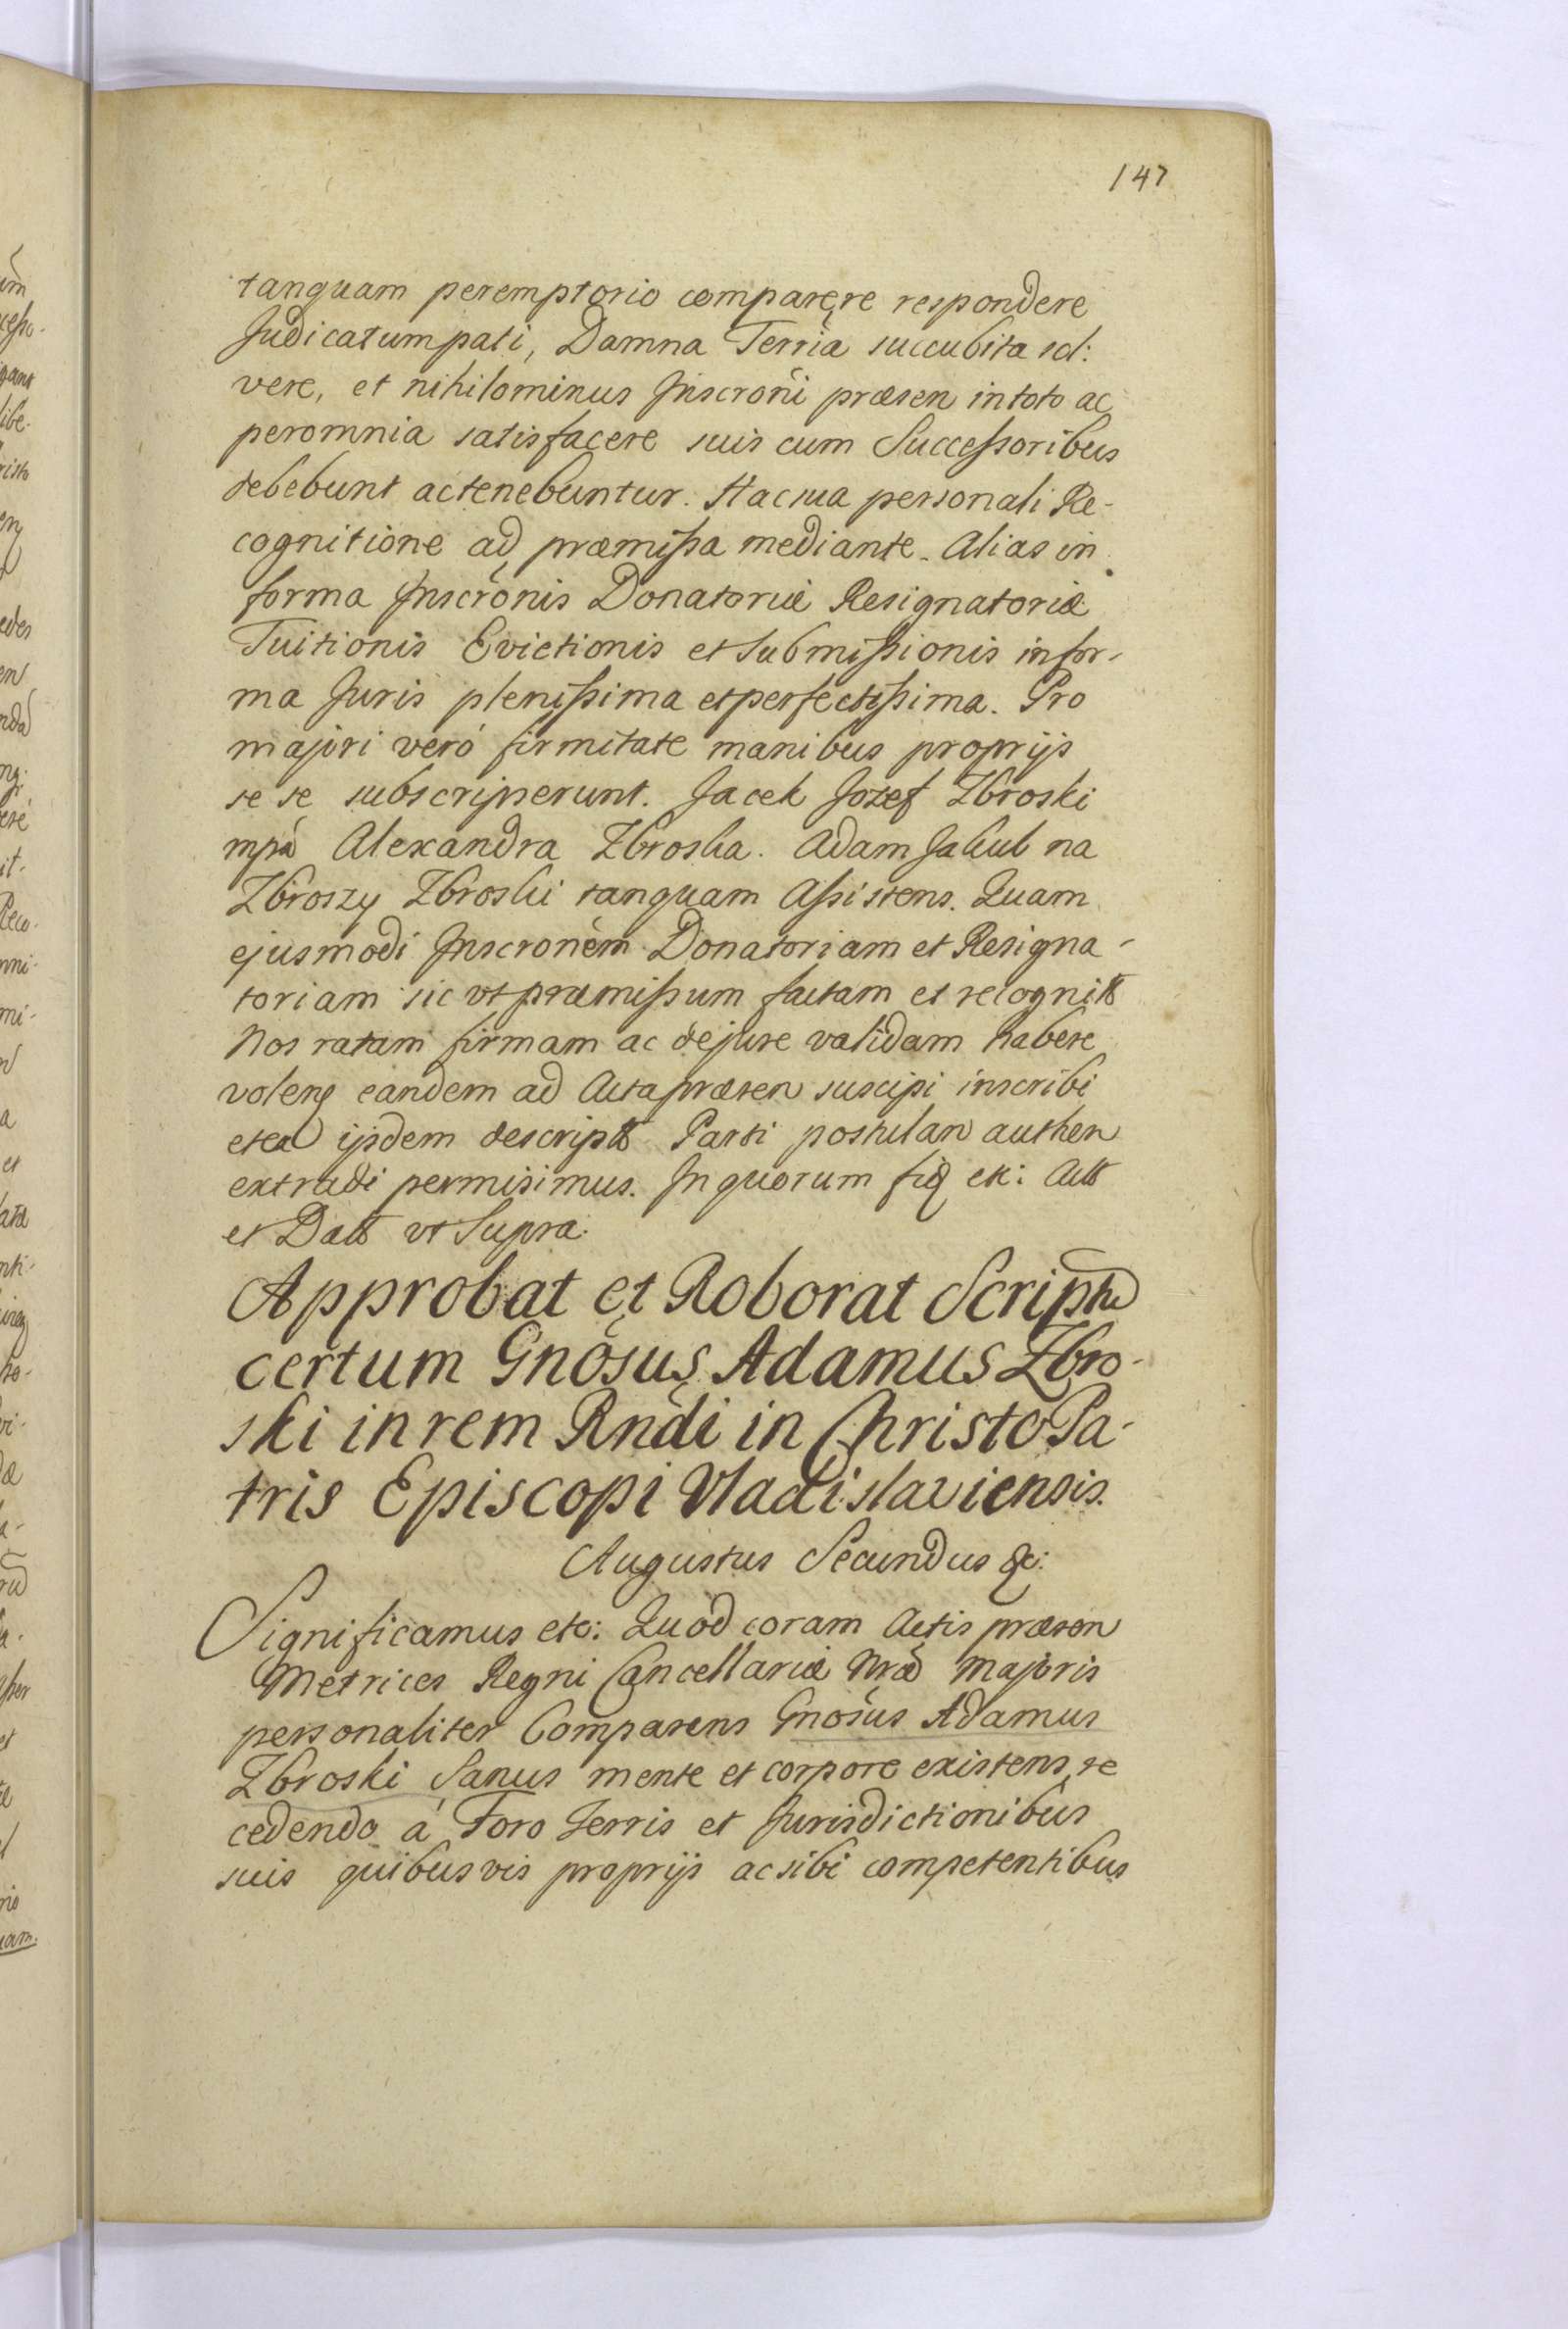 147
tanquam peremptorio comparere respondere
Judicatum pati, Damna Terria succubita sol:
vere, et nihilominus Inscroni præsen in toto ac
per omnia satisfacere suis cum Successoribus
debebunt ac tenebuntur. Hac sua personali Re-
cognitione ad præmissa mediante. Alias in
forma Inscronis Donatoriæ Resignatoriæ
Tuitionis Evictionis et Submissionis in for-
ma Juris plenissima et perfectissima. Pro
majori veró firmitate manibus proprijs
se se subscripserunt. Jacek Jozef Zbroski
mpá Alexandra Zbroska. Adam Jakub na
Zbroszy Zbroski tanquam Assistens. Quam
ejusmodi Inscronem Donatoriam et Resigna-
toriam sic vt præmissum factam et recognitt
Nos ratam firmam ac de jure validam habere
volen eandem ad Acta præsen suscipi inscribi
et ex ijsdem descriptt Parti postulan authen
extradi permisimus. In quorum fid etc: Actt
et Datt vt Supra.
Approbat et Roborat Scriptu
certum Gnosus Adamus Zbro-
ski in rem Rndi in Christo Pa-
tris Episcopi Vladislaviensis.
Augustus Secundus &c:
Significamus etc: Quod coram Actis præsen
Metrices Regni Cancellariæ Nræ Majoris
personaliter Comparens Gnosus Adamus
Zbroski Sanus mente et corpore existens, re
cedendo á Foro Terris et Jurisdictionibus
suis quibusvis proprijs ac sibi competentibus